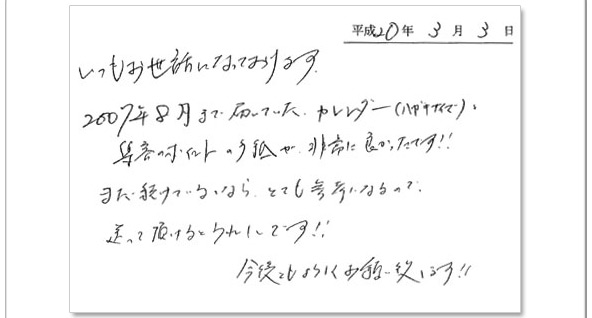 平成20年 3月 3日
いつもお世話になっております。
2007年8月まで届いていた、カレンダー(ハガキサイズ)、
集客のポイントの手紙が、非常に良かったです!!
まだ続けているなら、とても参考になるので、
送って頂けるとうれしいです!!
今後ともよろしくお願い致します!!